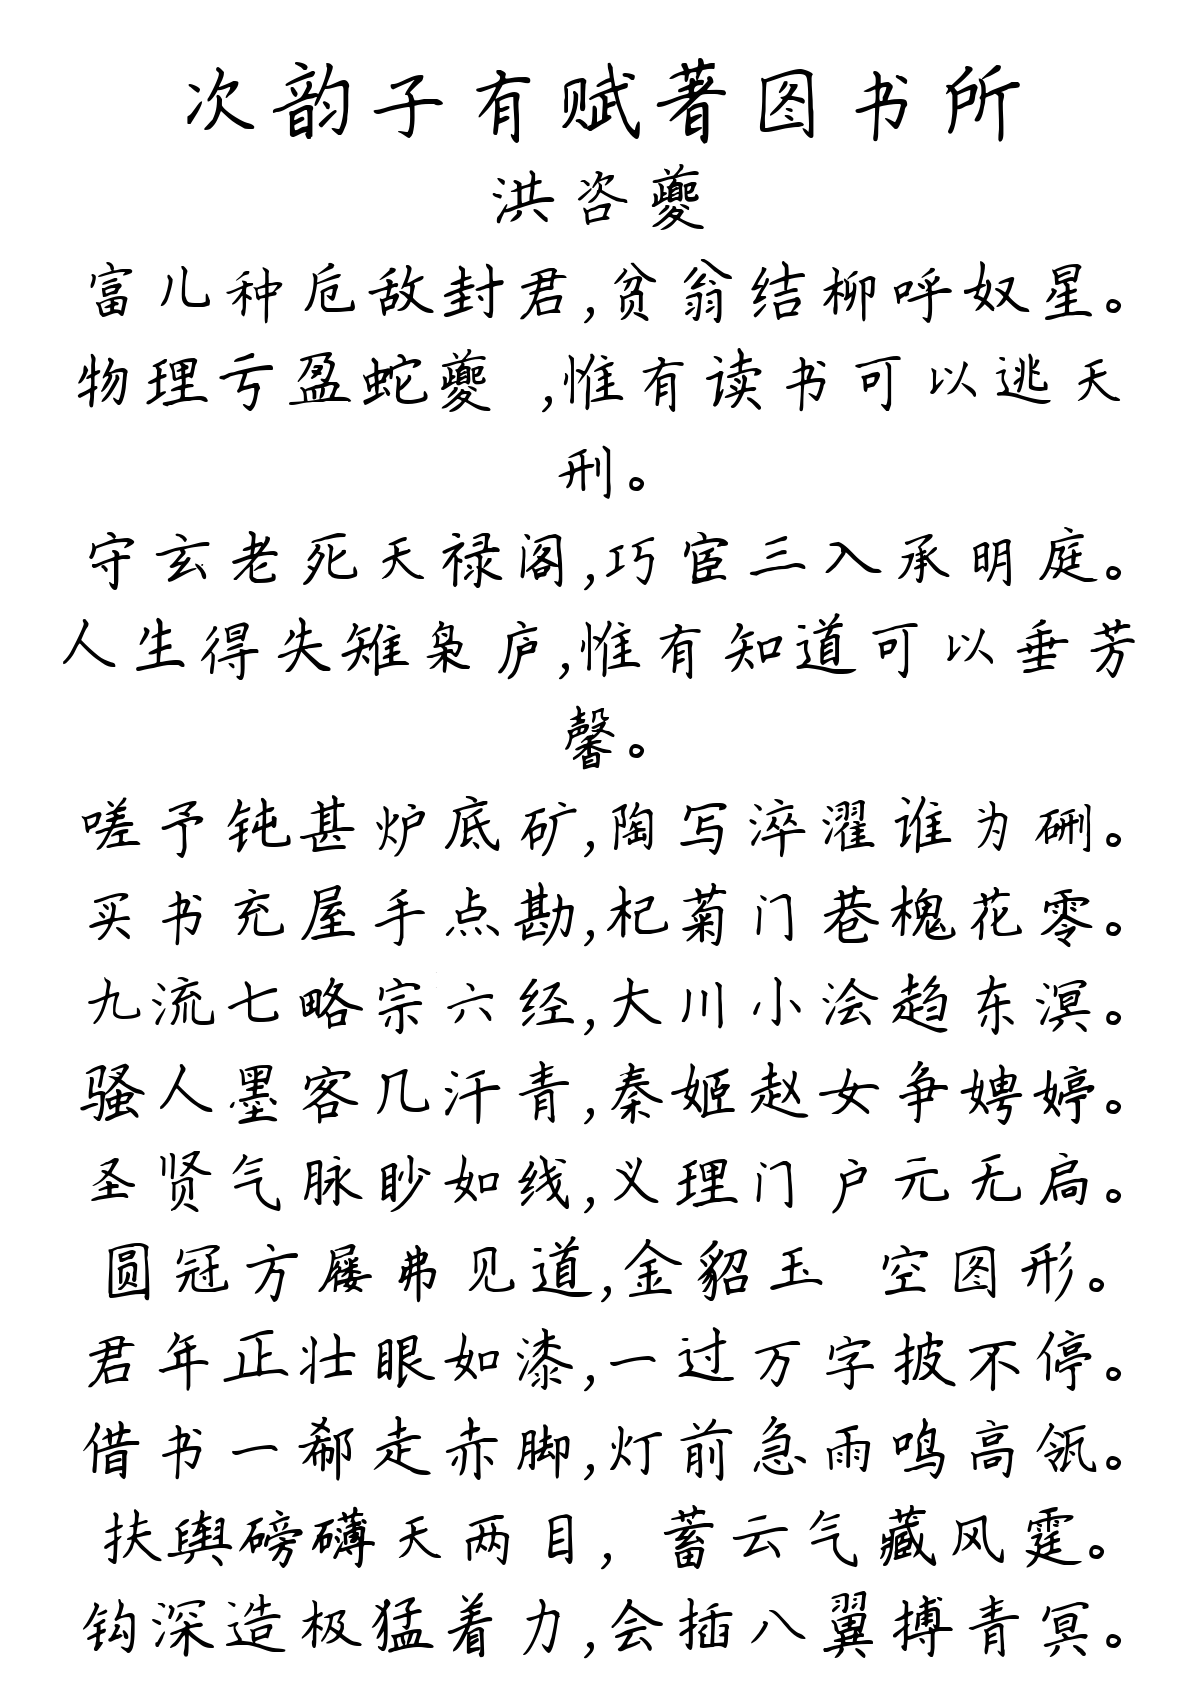 次韵子有赋著图书所
洪咨夔
富儿种卮敌封君,贫翁结柳呼奴星。
物理亏盈蛇夔 ,惟有读书可以逃天
刑。
守玄老死天禄阁,巧宦三入承明庭。
人生得失雉枭庐,惟有知道可以垂芳
馨。
嗟予钝甚炉底矿,陶写淬濯谁为硎。
买书充屋手点勘,杞菊门巷槐花零。
九流七略宗六经,大川小浍趋东溟。
骚人墨客几汗青,秦姬赵女争娉婷。
圣贤气脉眇如线,义理门户元无扃。
圆冠方屦弗见道,金貂玉 空图形。
君年正壮眼如漆,一过万字披不停。
借书一郗走赤脚,灯前急雨鸣高瓴。
扶舆磅礴天两目, 蓄云气藏风霆。
钩深造极猛着力,会插八翼搏青冥。